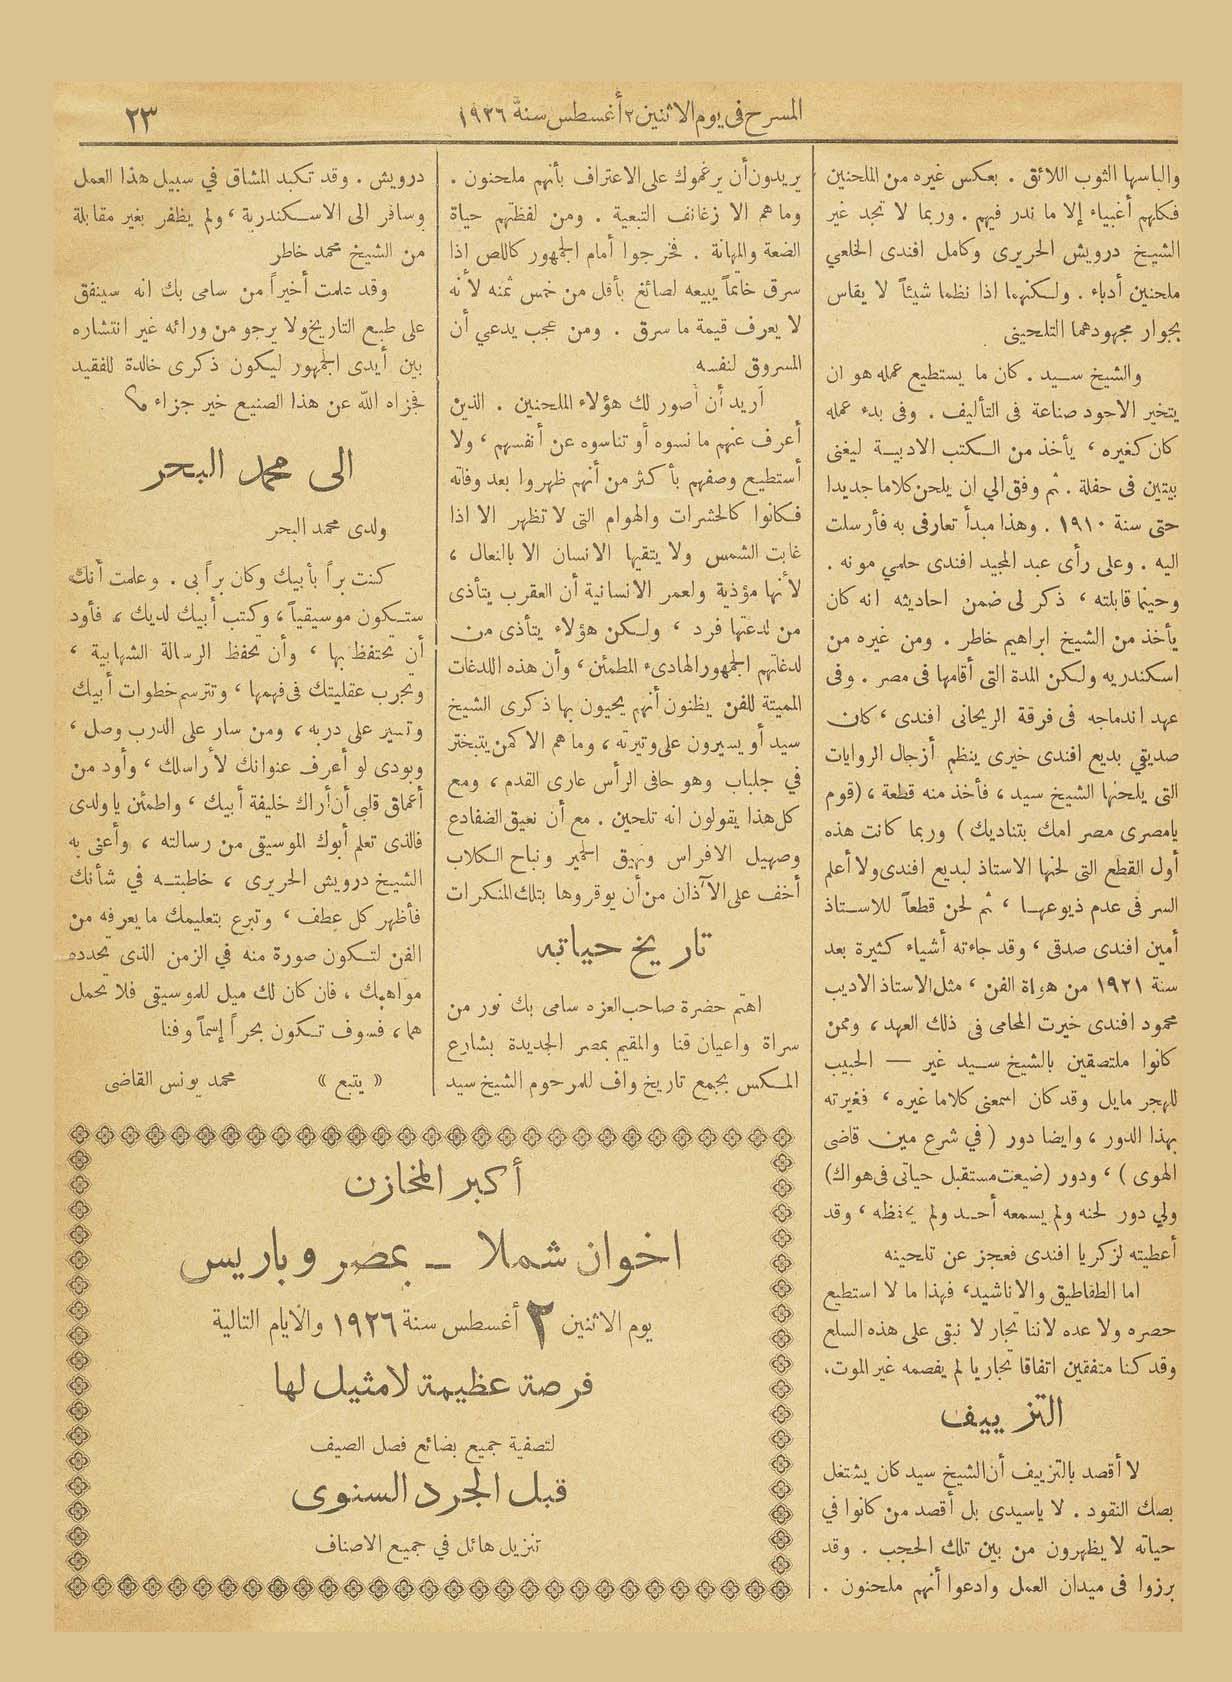 المسرح فى يوم الاثنين ٢ أغسطس سنة ١٩٢٦
٢٣
والباسها الثوب اللائق . بعكس غيره من الملحنين
فكلهم أغبياء إلا ما ندر فيهم . وربما لا تجد غير
الشيخ درويش الحريرى وكامل افندى الخلعي
ملحنين أدباء . ولكنهما اذا نظما شيئاً لا يقاس
بجوار مجهودهما التلحينى
والشيخ سيد . كان ما يستطيع عمله هو ان
يتخير الاجود صناعة فى التأليف . وفى بدء عمله
كان كغيره ، يأخذ من الكتب الادبية ليغنى
بيتين فى حفلة . ثم وفق الي ان يلحن كلاما جديدا
حتى سنة ١٩١٠ . وهذا مبدأ تعارفى به فأرسلت
اليه . وعلى رأى عبد المجيد افندى حلمي مونه .
وحينما قابلته ، ذكر لى ضمن احاديثه انه كان
يأخذ من الشيخ ابراهيم خاطر . ومن غيره من
اسكندريه ولكن المدة التى أقامها فى مصر . وفى
عهد اندماجه فى فرقة الريحانى افندى ، كان
صديقي بديع افندى خيرى ينظم أزجال الروايات
التى يلحنها الشيخ سيد ، فأخذ منه قطعة ، (قوم
يامصرى مصر امك بتناديك) وربما كانت هذه
أول القطع التى لحنها الاستاذ لبديع افندى ولا أعلم
السر فى عدم ذيوعها ، ثم لحن قطعاً للاستاذ
أمين افندى صدقى ، وقد جاءته أشياء كثيرة بعد
سنة ١٩٢١ من هواة الفن ، مثل الاستاذ الاديب
محمود افندى خيرت المحامى فى ذلك العهد ، وممن
كانوا ملتصقين بالشيخ سيد غير — الحبيب
للهجر مايل وقد كان اسمعنى كلاما غيره ، فغيرته
بهذا الدور ، وايضا دور ( في شرع مين قاضى
الهوى ) ، ودور (ضيعت مستقبل حياتى فى هواك)
ولي دور لحنه ولم يسمعه أحد ولم يحفظه ، وقد
أعطيته لزكريا افندى فعجز عن تلحينه
اما الطقاطيق والاناشيد، فهذا ما لا استطيع
حصره ولا عده لاننا تجار لا نبقى على هذه السلع
وقد كنا متفقين اتفاقا تجاريا لم يفصمه غير الموت،
التزييف
لا أقصد بالتزييف أن الشيخ سيد كان يشتغل
بصك النقود . لا ياسيدى بل أقصد من كانوا في
حياته لا يظهرون من بين تلك الحجب . وقد
برزوا فى ميدان العمل وادعوا أنهم ملحنون .
يريدون أن يرغموك على الاعتراف بأنهم ملحنون .
وما هم الا زعانف التبعية . ومن لفظتهم حياة
الضعة والمهانة . فخرجوا أمام الجمهور كاللص اذا
سرق خاتماً يبيعه لصائغ بأقل من خمس ثمنه لأنه
لا يعرف قيمة ما سرق . ومن عجب يدعي أن
المسروق لنفسه
أريد أن أصور لك هؤلاء الملحنين . الذين
أعرف عنهم ما نسوه أو تناسوه عن أنفسهم ، ولا
أستطيع وصفهم بأكثر من أنهم ظهروا بعد وفاته
فكانوا كالحشرات والهوام التى لا تظهر الا اذا
غابت الشمس ولا يتقيها الانسان الا بالنعال ،
لأنها مؤذية ولعمر الانسانية أن العقرب يتأذى
من لدغتها فرد ، ولكن هؤلاء يتأذى من
لدغاتهم الجمهور الهادىء المطمئن ، وأن هذه اللدغات
المميتة للفن يظنون أنهم يحيون بها ذكرى الشيخ
سيد أو يسيرون على وتيرته ، وما هم الا كمن يتبختر
في جلباب وهو حافى الرأس عارى القدم ، ومع
كل هذا يقولون انه تلحين . مع أن نعيق الضفادع
وصهيل الافراس ونهيق الحمير ونباح الكلاب
أخف على الآذان من أن يوقروها بتلك المنكرات
تاريخ حياته
اهتم حضرة صاحب العزه سامى بك نور من
سراة واعيان قنا والمقيم بمصر الجديدة بشارع
المكس بجمع تاريخ واف للمرحوم الشيخ سيد
درويش . وقد تكبد المشاق في سبيل هذا العمل
وسافر الى الاسكندرية ، ولم يظفر بغير مقابلة
من الشيخ محمد خاطر
وقد علمت أخيراً من سامى بك انه سينفق
على طبع التاريخ ولا يرجو من ورائه غير انتشاره
بين أيدى الجمهور ليكون ذكرى خالدة للفقيد
فجزاه الله عن هذا الصنيع خير جزاء
الى محمد البحر
ولدى محمد البحر
كنت براً بأبيك وكان براً بى . وعلمت أنك
ستكون موسيقياً ، وكتب أبيك لديك ، فأود
أن تحتفظ بها ، وأن تحفظ الرسالة الشهابية ،
وتجرب عقليتك فى فهمها ، وتترسم خطوات أبيك
وتسير على دربه ، ومن سار على الدرب وصل ،
وبودى لو أعرف عنوانك لأراسلك ، وأود من
أعماق قلبى أن أراك خليفة أبيك ، واطمئن يا ولدى
فالذى تعلم أبوك الموسيقى من رسالته ، وأعنى به
الشيخ درويش الحريرى ، خاطبته في شأنك
فأظهر كل عطف ، وتبرع بتعليمك ما يعرفه من
الفن لتكون صورة منه في الزمن الذى تحدده
مواهبك ، فان كان لك ميل للموسيقى فلا تحمل
هما ، فسوف تكون بحراً إسماً وفنا
« يتبع »
محمد يونس القاضى
أكبر المخازن
اخوان شملا - بمصر وباريس
يوم الاثنين ٢ أغسطس سنة ١٩٢٦ والايام التالية
فرصة عظيمة لامثيل لها
لتصفية جميع بضائع فصل الصيف
قبل الجرد السنوى
تنزيل هائل في جميع الاصناف